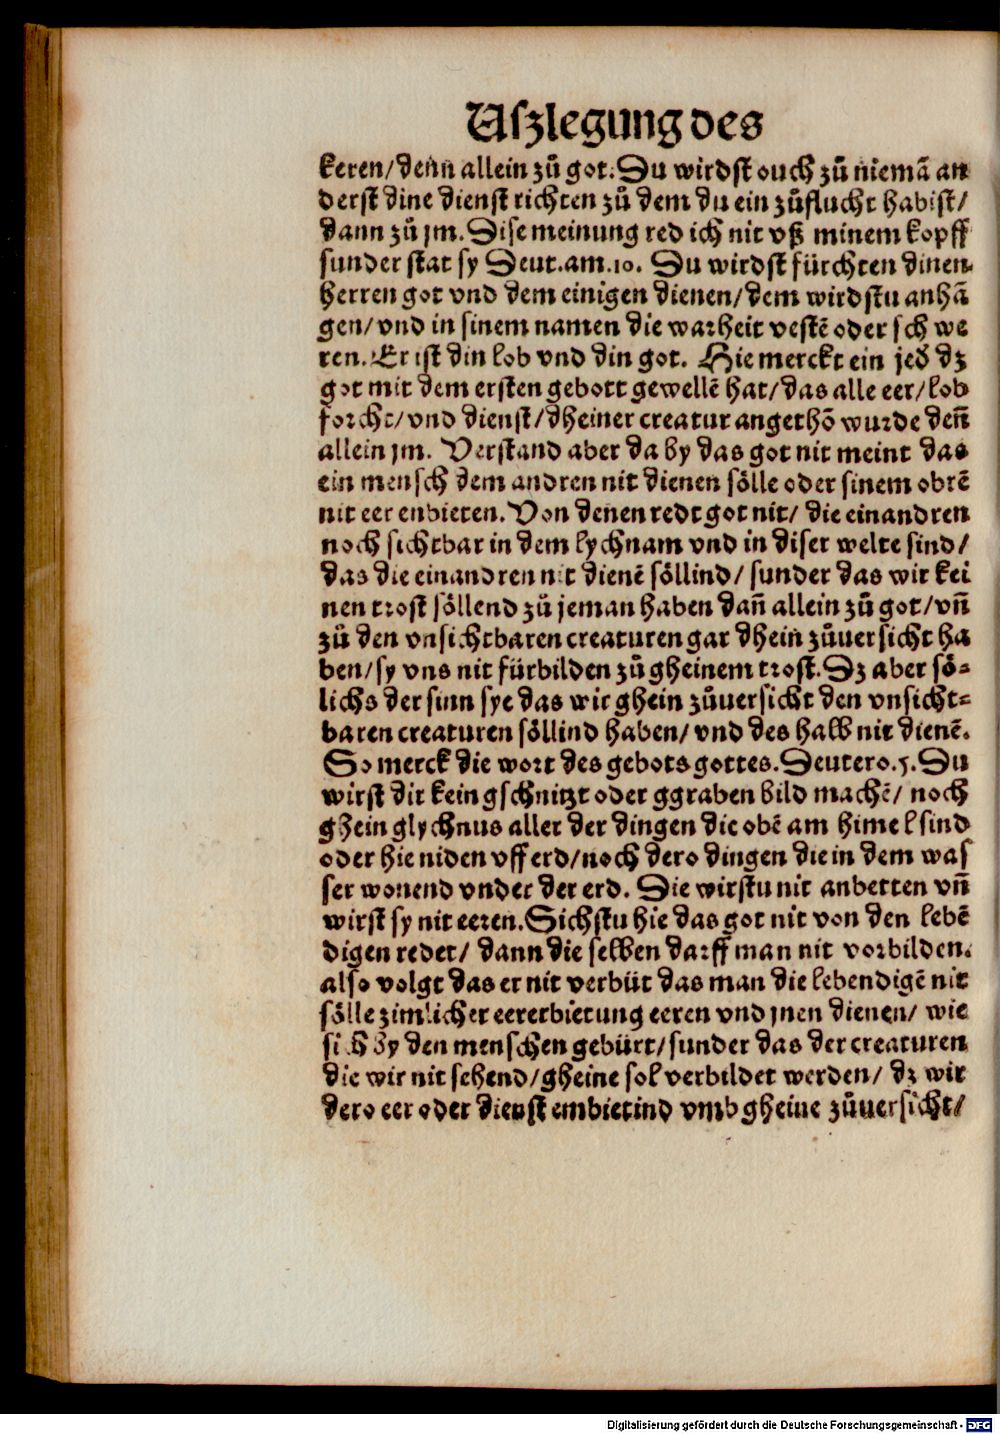 Uſzlegung des
keren/denn allein zů got. Du wirdſt ouch zů niemã an
derſt dine dienſt richten zů dem du ein zůflucht habiſt/
dann zů jm. Diſe meinung red ich nit vß minem kopff
ſunder ſtat ſy Deut. am. 10. Du wirdſt fürchten dinen
herren got vnd dem einigen dienen/dem wirdſtu anhã
gen/vnd in ſinem namen die warheit veſtẽ oder ſchwe
ren. Er iſt din lob vnd din got. Hie merckt ein jed dz
got mit dem erſten gebott gewellẽ hat/das alle eer/lob
forcht/vnd dienſt/dheiner creatur angethõ wurde den̄
allein jm. Verſtand aber da by das got nit meint das
ein menſch dem andren nit dienen ſölle oder ſinem obrẽ
nit eer enbieten. Von denen redt got nit/ die einandren
noch ſichtbar in dem lychnam vnd in diſer welte ſind/
das die einandren nit dienẽ ſöllind/ ſunder das wir kei
nen troſt ſöllend zů jeman haben dan̄ allein zů got/vn̄
zů den vnſichtbaren creaturen gar dhein zůuerſicht ha
ben/ſy vns nit fürbilden zů gheinem troſt. Dz aber ſö⸗
lichs der ſinn ſye das wir ghein zůuerſicht den vnſicht⸗
baren creaturen ſöllind haben/ vnd des halb nit dienẽ.
So merck die wort des gebots gottes. Deutero. 5. Du
wirſt dir kein gſchnitzt oder ggraben bild machẽ/ noch
ghein glychnus aller der dingen die obẽ am himel ſind
oder hie niden vff erd/noch dero dingen die in dem waſ
ſer wonend vnder der erd. Die wirſtu nit anbetten vn̄
wirſt ſy nit eeren. Sichſtu hie das got nit von den lebẽ
digen redet/ dann die ſelben darff man nit vorbilden.
alſo volgt das er nit verbüt das man die lebendigẽ nit
ſölle zimlicher eererbietung eeren vnd jnen dienen/ wie
ſich by den menſchen gebürt/ſunder das der creaturen
die wir nit ſehend/gheine ſol verbildet werden/ dz wir
dero eer oder dienſt embietind vmb gheine zůuerſicht/
Digitalisierung gefördert durch die Deutsche Forschungsgemeinschaft - DFG